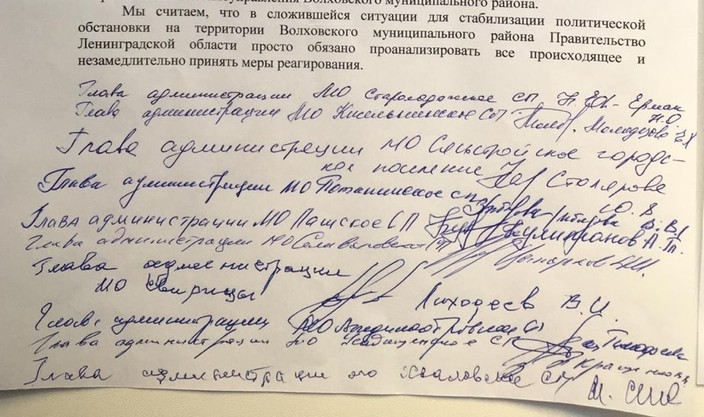 Волховского муниципального района.
Мы считаем, что в сложившейся ситуации для стабилизации политической
обстановки на территории Волховского муниципального района Правительство
Ленинградской области просто обязано проанализировать все происходящее и
незамедлительно принять меры реагирования.
Глава администрации МО Староладожское СП Ермак Н.О.
Глава администрации МО Кисельнинское СП Молодцова
Глава администрации МО Сясьстройское городс-
кое поселение Столярова
Ю. В.
Глава администрации МО Потанинское СП
Глава администрации МО Пашское СП Кулиманов А.Т.
Глава администрации МО Селивановское СП
Глава администрации
МО Свирицы Лиходеев В.И.
Глава администрации МО СП Тимофеева
Глава администрации МО Усадищенское СП
Глава администрации МО Хваловское СП